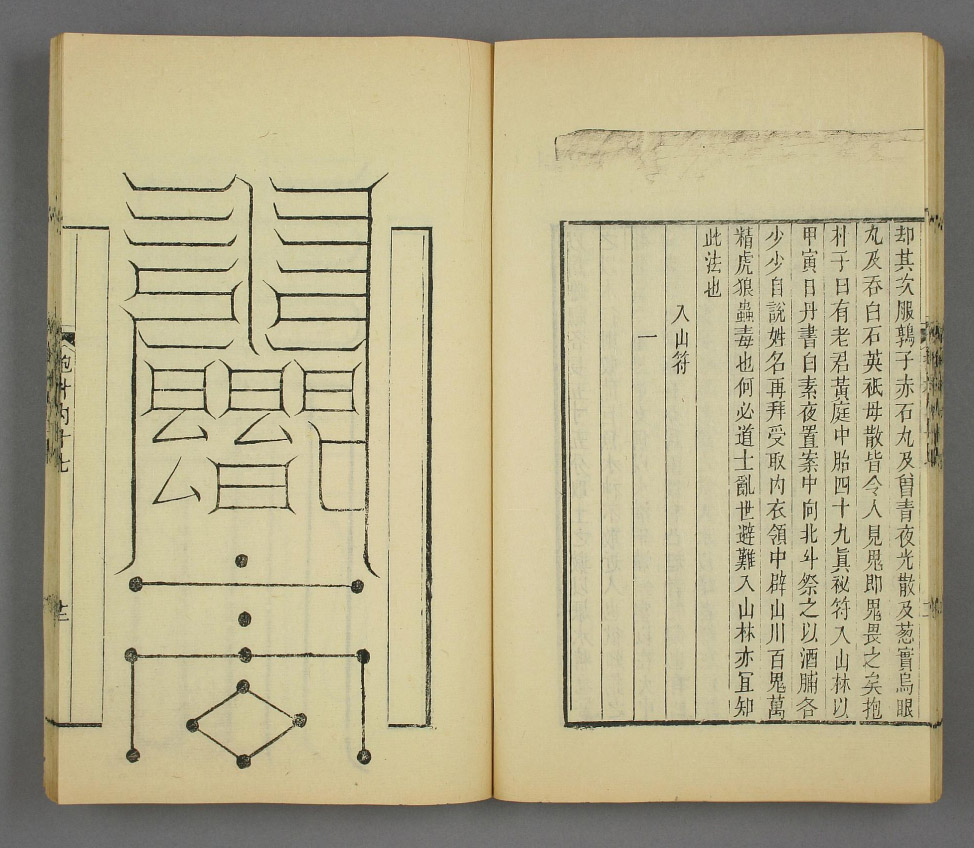 却其次服鶉子赤石丸及曾青夜光散及葱實烏眼
丸及吞白石英祇母散皆令人見鬼即鬼畏之矣抱
朴子曰有老君黃庭中胎四十九眞祕符入山林以
甲寅日丹書白素夜置案中向北斗祭之以酒脯各
少少自說姓名再拜受取内衣領中辟山川百鬼萬
精虎狼蟲毒也何必道士亂世避難入山林亦宜知
此法也
入山符
一
抱朴内十七
十二